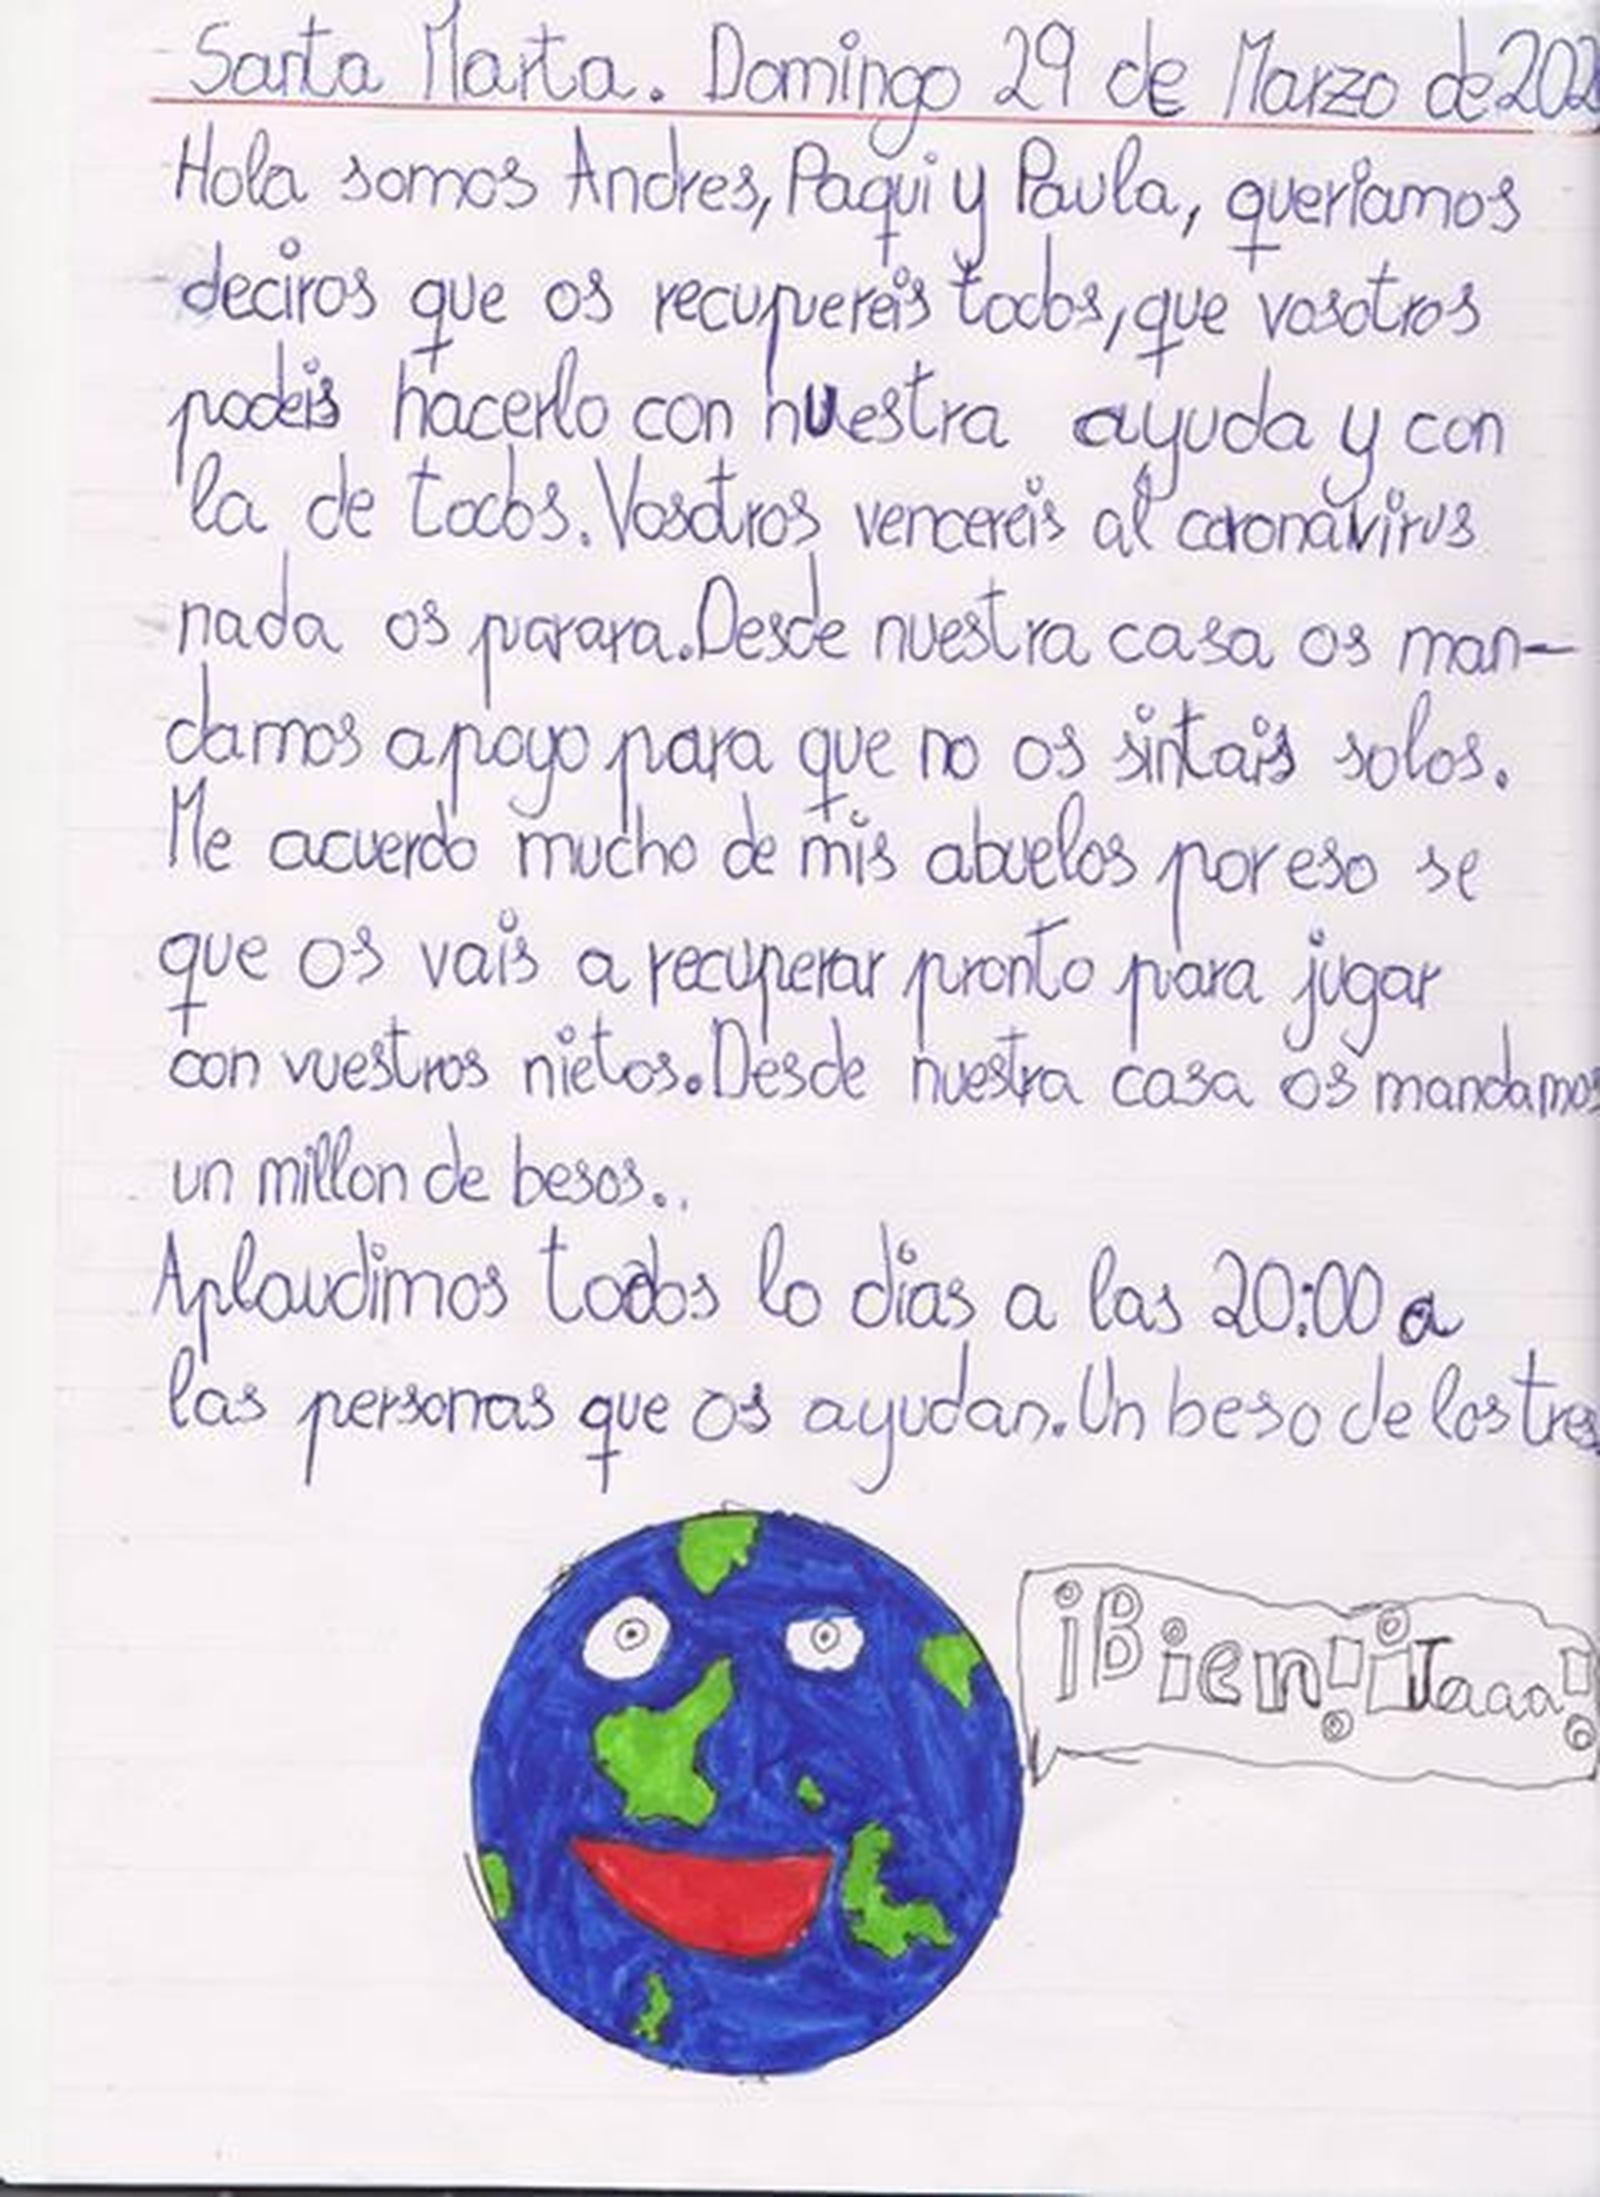 Santa Marta. Domingo 29 de Marzo de 202
Hola somos Andres, Paqui y Paula, queriamos
deciros que os recupereis todos, que vosotros
podeis hacerlo con nuestra ayuda y con
la de todos. Vosotros vencereis al coronavirus
nada os parara. Desde nuestra casa os man-
damos apoyo para que no os sintais solos.
Me acuerdo mucho de mis abuelos por eso se
que os vais a recuperar pronto para jugar
con vuestros nietos. Desde nuestra casa os mandamos
un millon de besos..
Aplaudimos todos lo dias a las 20:00 a
las personas que os ayudan. Un beso de los tres.
¡Bien! ¡Jaaa!